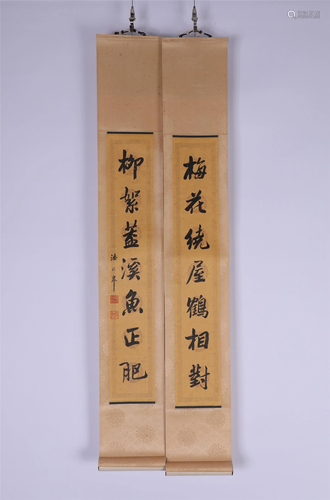 梅花繞屋鶴相對
柳絮蓋溪魚正肥